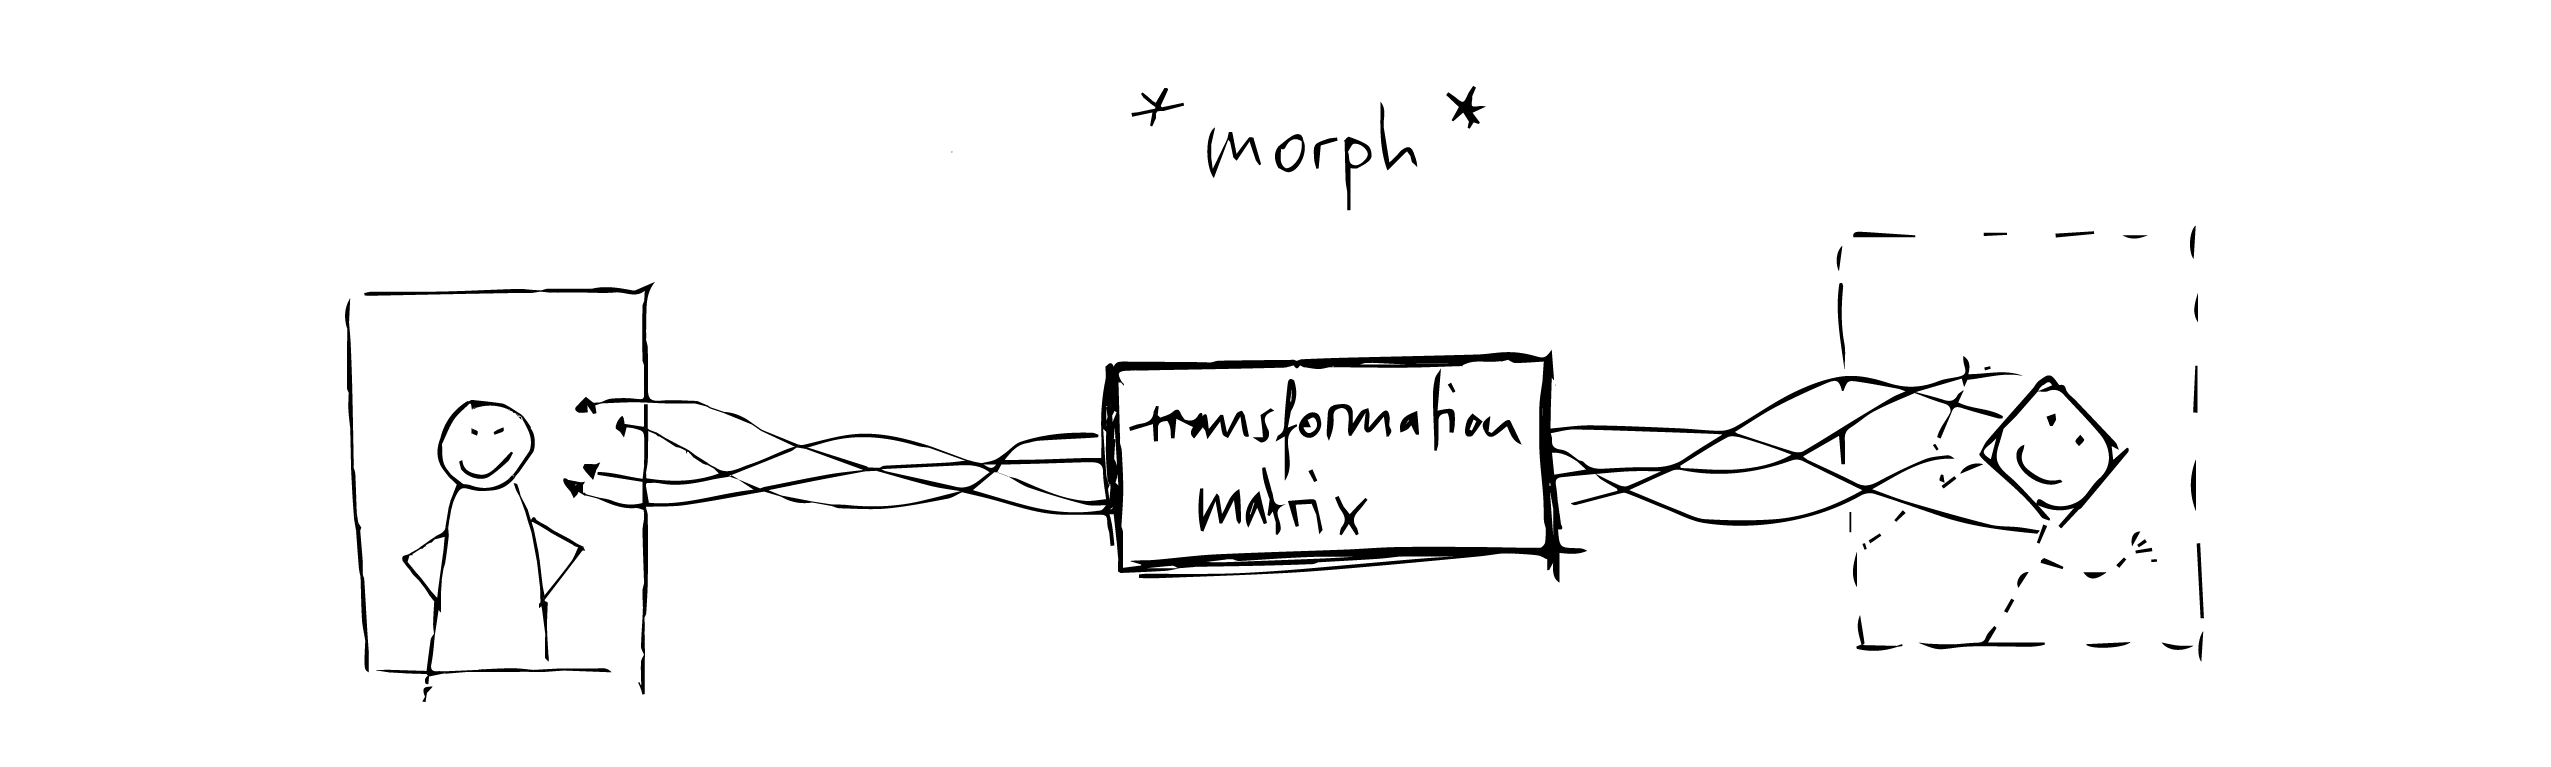 *morph*
transformation
matrix